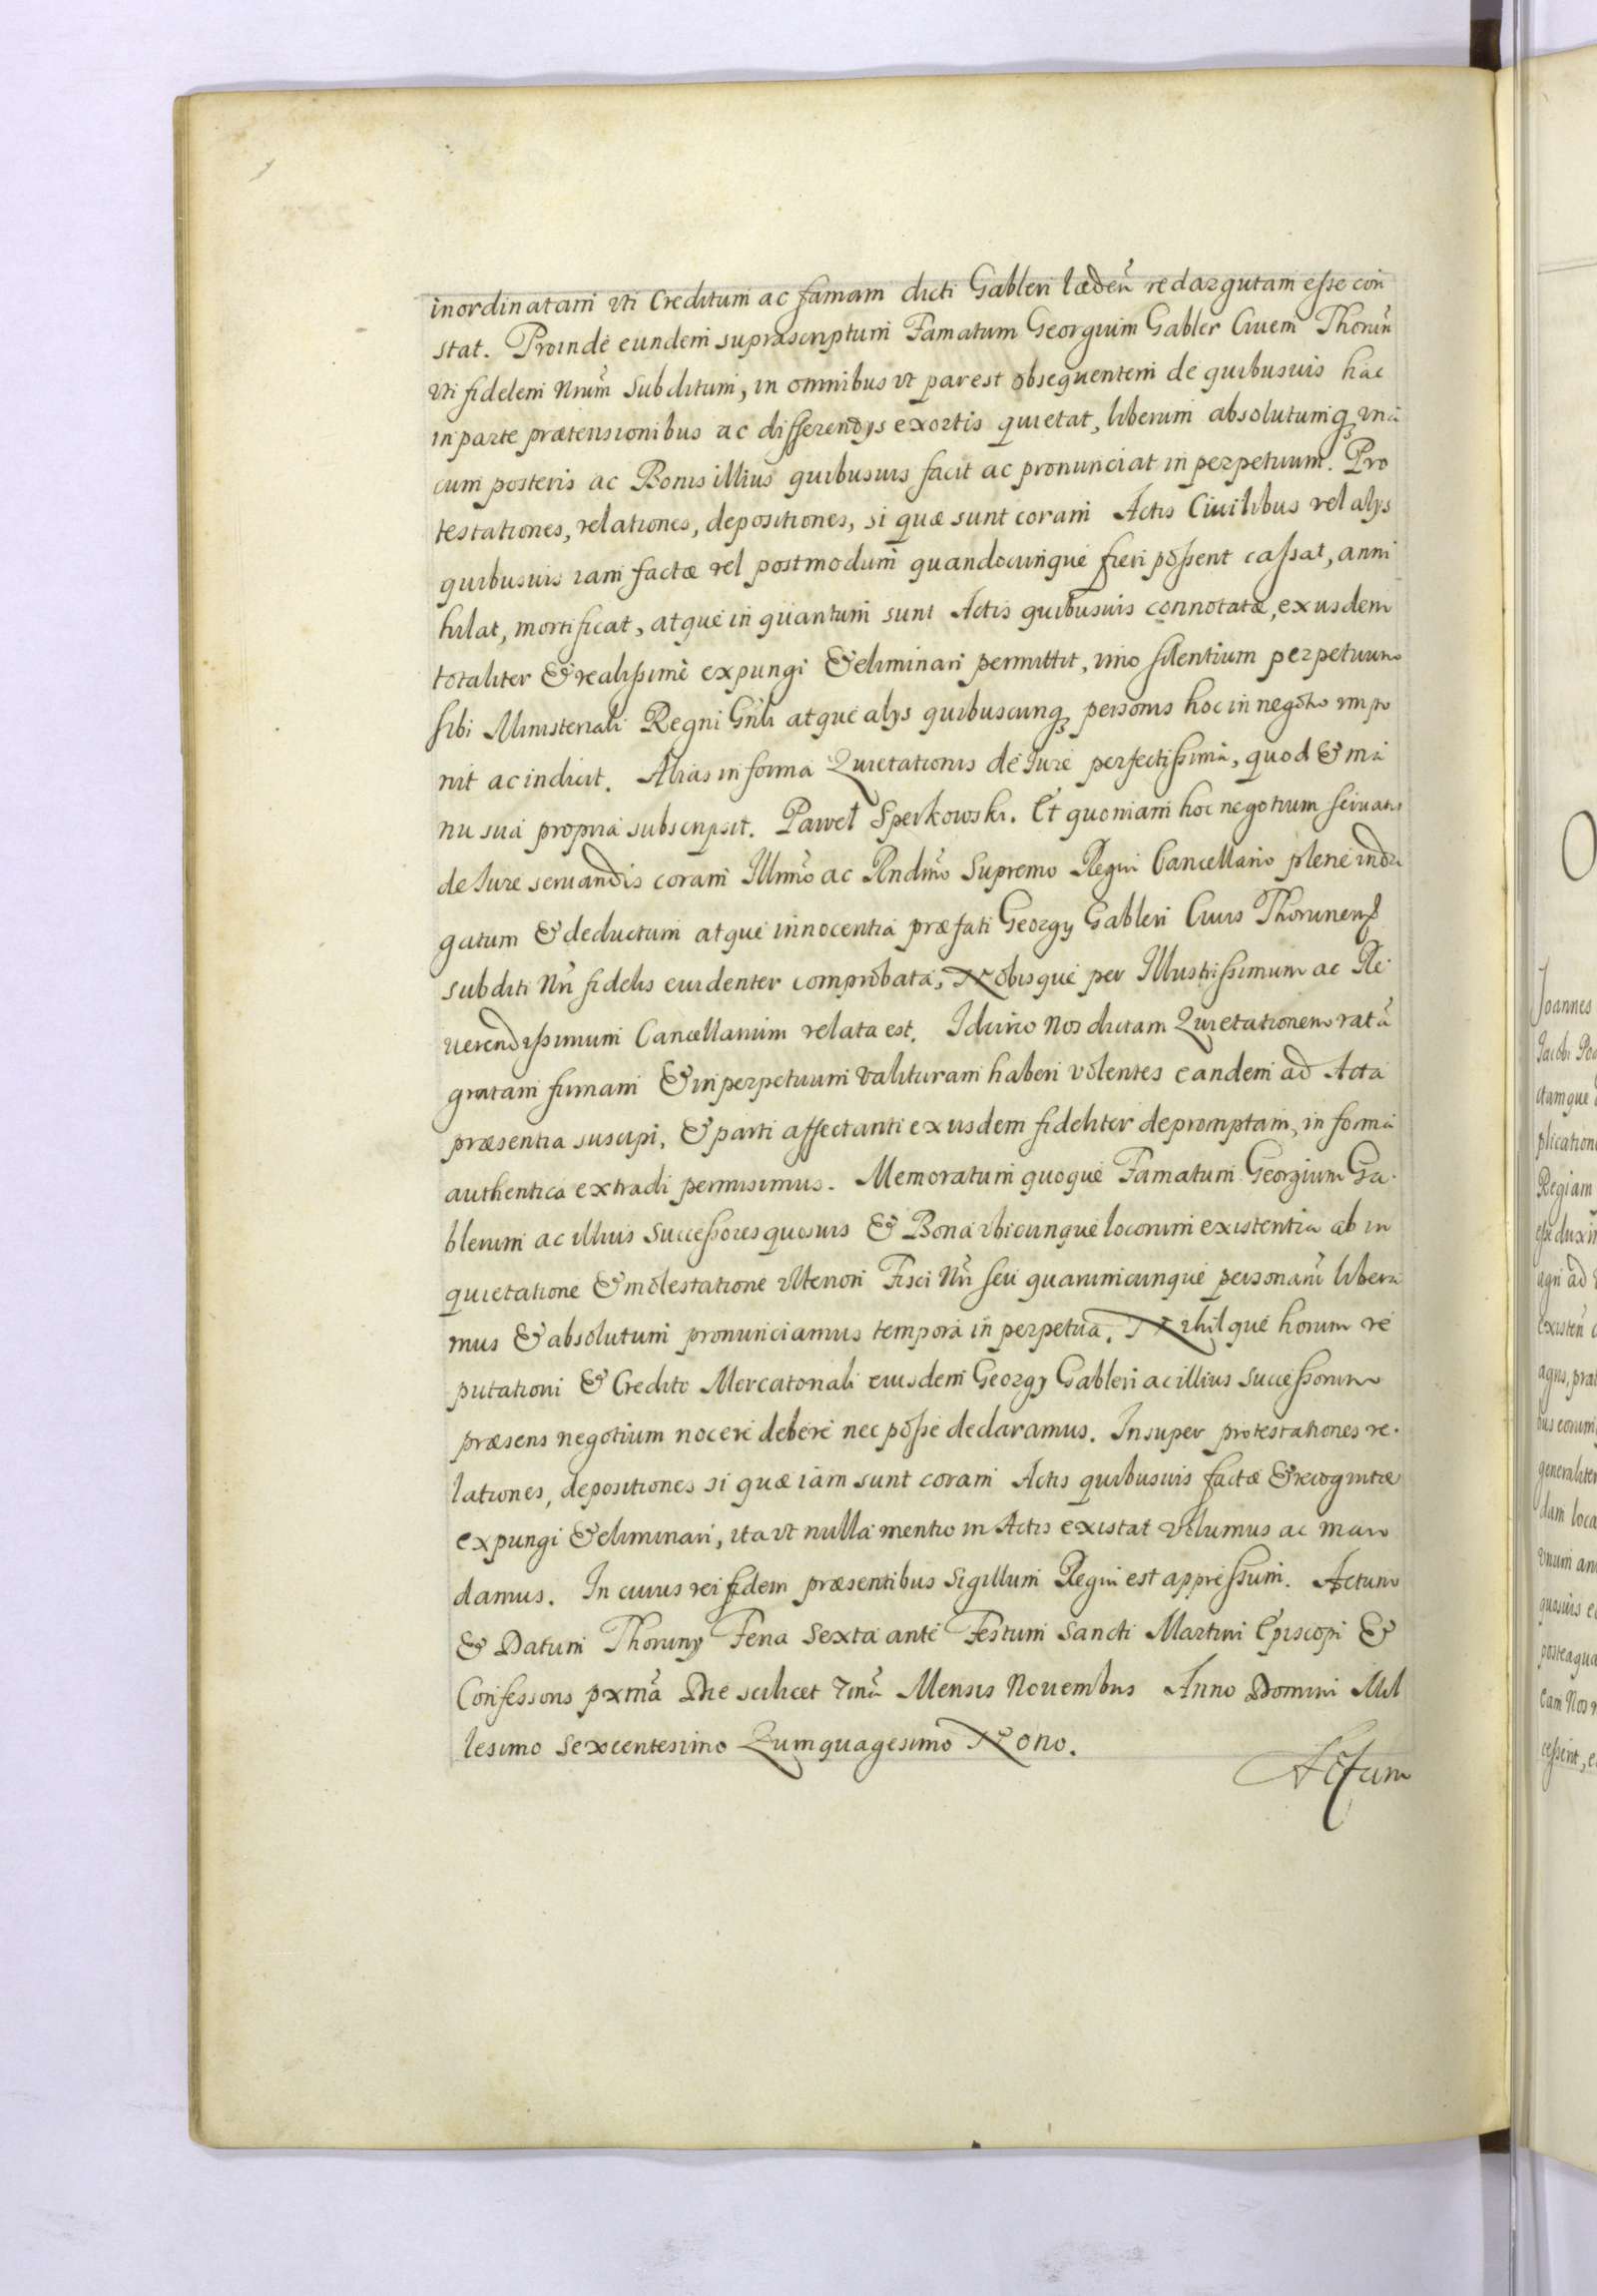 inordinatam vti Creditum ac famam dicti Gableri læden̄ redargutam eſse con
stat. Proinde eundem suprascriptum Famatum Georgium Gabler Ciuem Thorun̄
vti fidelem Nrum̄ Subditum, in omnibus vt par est obsequentem de quibusuis hac
in parte prætensionibus ac differendys exortis quietat, liberum absolutumq, vnà
cum posteris ac Bonis illius quibusuis facit ac pronunciat in perpetuum. Pro
testationes, relationes, depositiones, si quæ sunt coram Actis Ciuilibus vel alys
quibusuis iam factæ vel postmodum quandocunque fieri poſsent caſsat, anni
hilat, mortificat, atque in quantum sunt Actis quibusuis connotatæ, ex usdem
totaliter & realiſsimè expungi & eliminari permittit, imo silentium perpetuum
sibi Ministeriali Regni Gn̄li atque alys quibuscunq, personis hoc in negotio impo
nit ac indicit. Alias in forma Quietationis de Jure perfectiſsima, quod & ma
nu sua propria subscripsit. Paweł Sperkowski. Et quoniam hoc negotium seruatis
de Iure seruandis coram Illmo̅ ac Rndmo̅ Supremo Regni Cancellario plenè inda
gatum & deductum atque innocentia præfati Georgy Gableri Ciuis Thorunenſ
subditi Nri̅ fidelis euidenter comprobata, Nobisque per Illustriſsimum ac Re
uerendiſsimum Cancellarium relata est. Idcirco Nos dictam Quietationem ratā
gratam firmam & in perpetuum valituram haberi volentes eandem ad Acta
præsentia suscipi, & parti affectanti ex usdem fideliter depromptam, in forma
authentica extradi permisimus. Memoratum quoque Famatum Georgium Ga
blerum ac illius Succeſsores quosuis & Bona vbicunque locorum existentia ab in
quietatione & molestatione vlteriori Fisci Nri̅ seu quarumcunque personarū libera
mus & absolutum pronunciamus tempora in perpetua. Nihilque horum re
putationi & Credito Mercatoriali eiusdem Georgy Gableri ac illius Succeſsorum
præsens negotium nocere debere nec poſse declaramus. Insuper protestationes re
lationes, depositiones si quæ iam sunt coram Actis quibusuis factæ & recognitæ
expungi & eliminari, ita vt nulla mentio in Actis existat volumus ac man
damus. In cuius rei fidem præsentibus Sigillum Regni est appreſsum. Actum
& Datum Thoruny Feria Sexta ante Festum Sancti Martini Episcopi &
Confessoris pxmā Die scilicet 7mā Mensis Nouembris Anno Domini Mil
lesimo Sexcentesimo Quinquagesimo Nono.
Actum
Joannes
Regiam